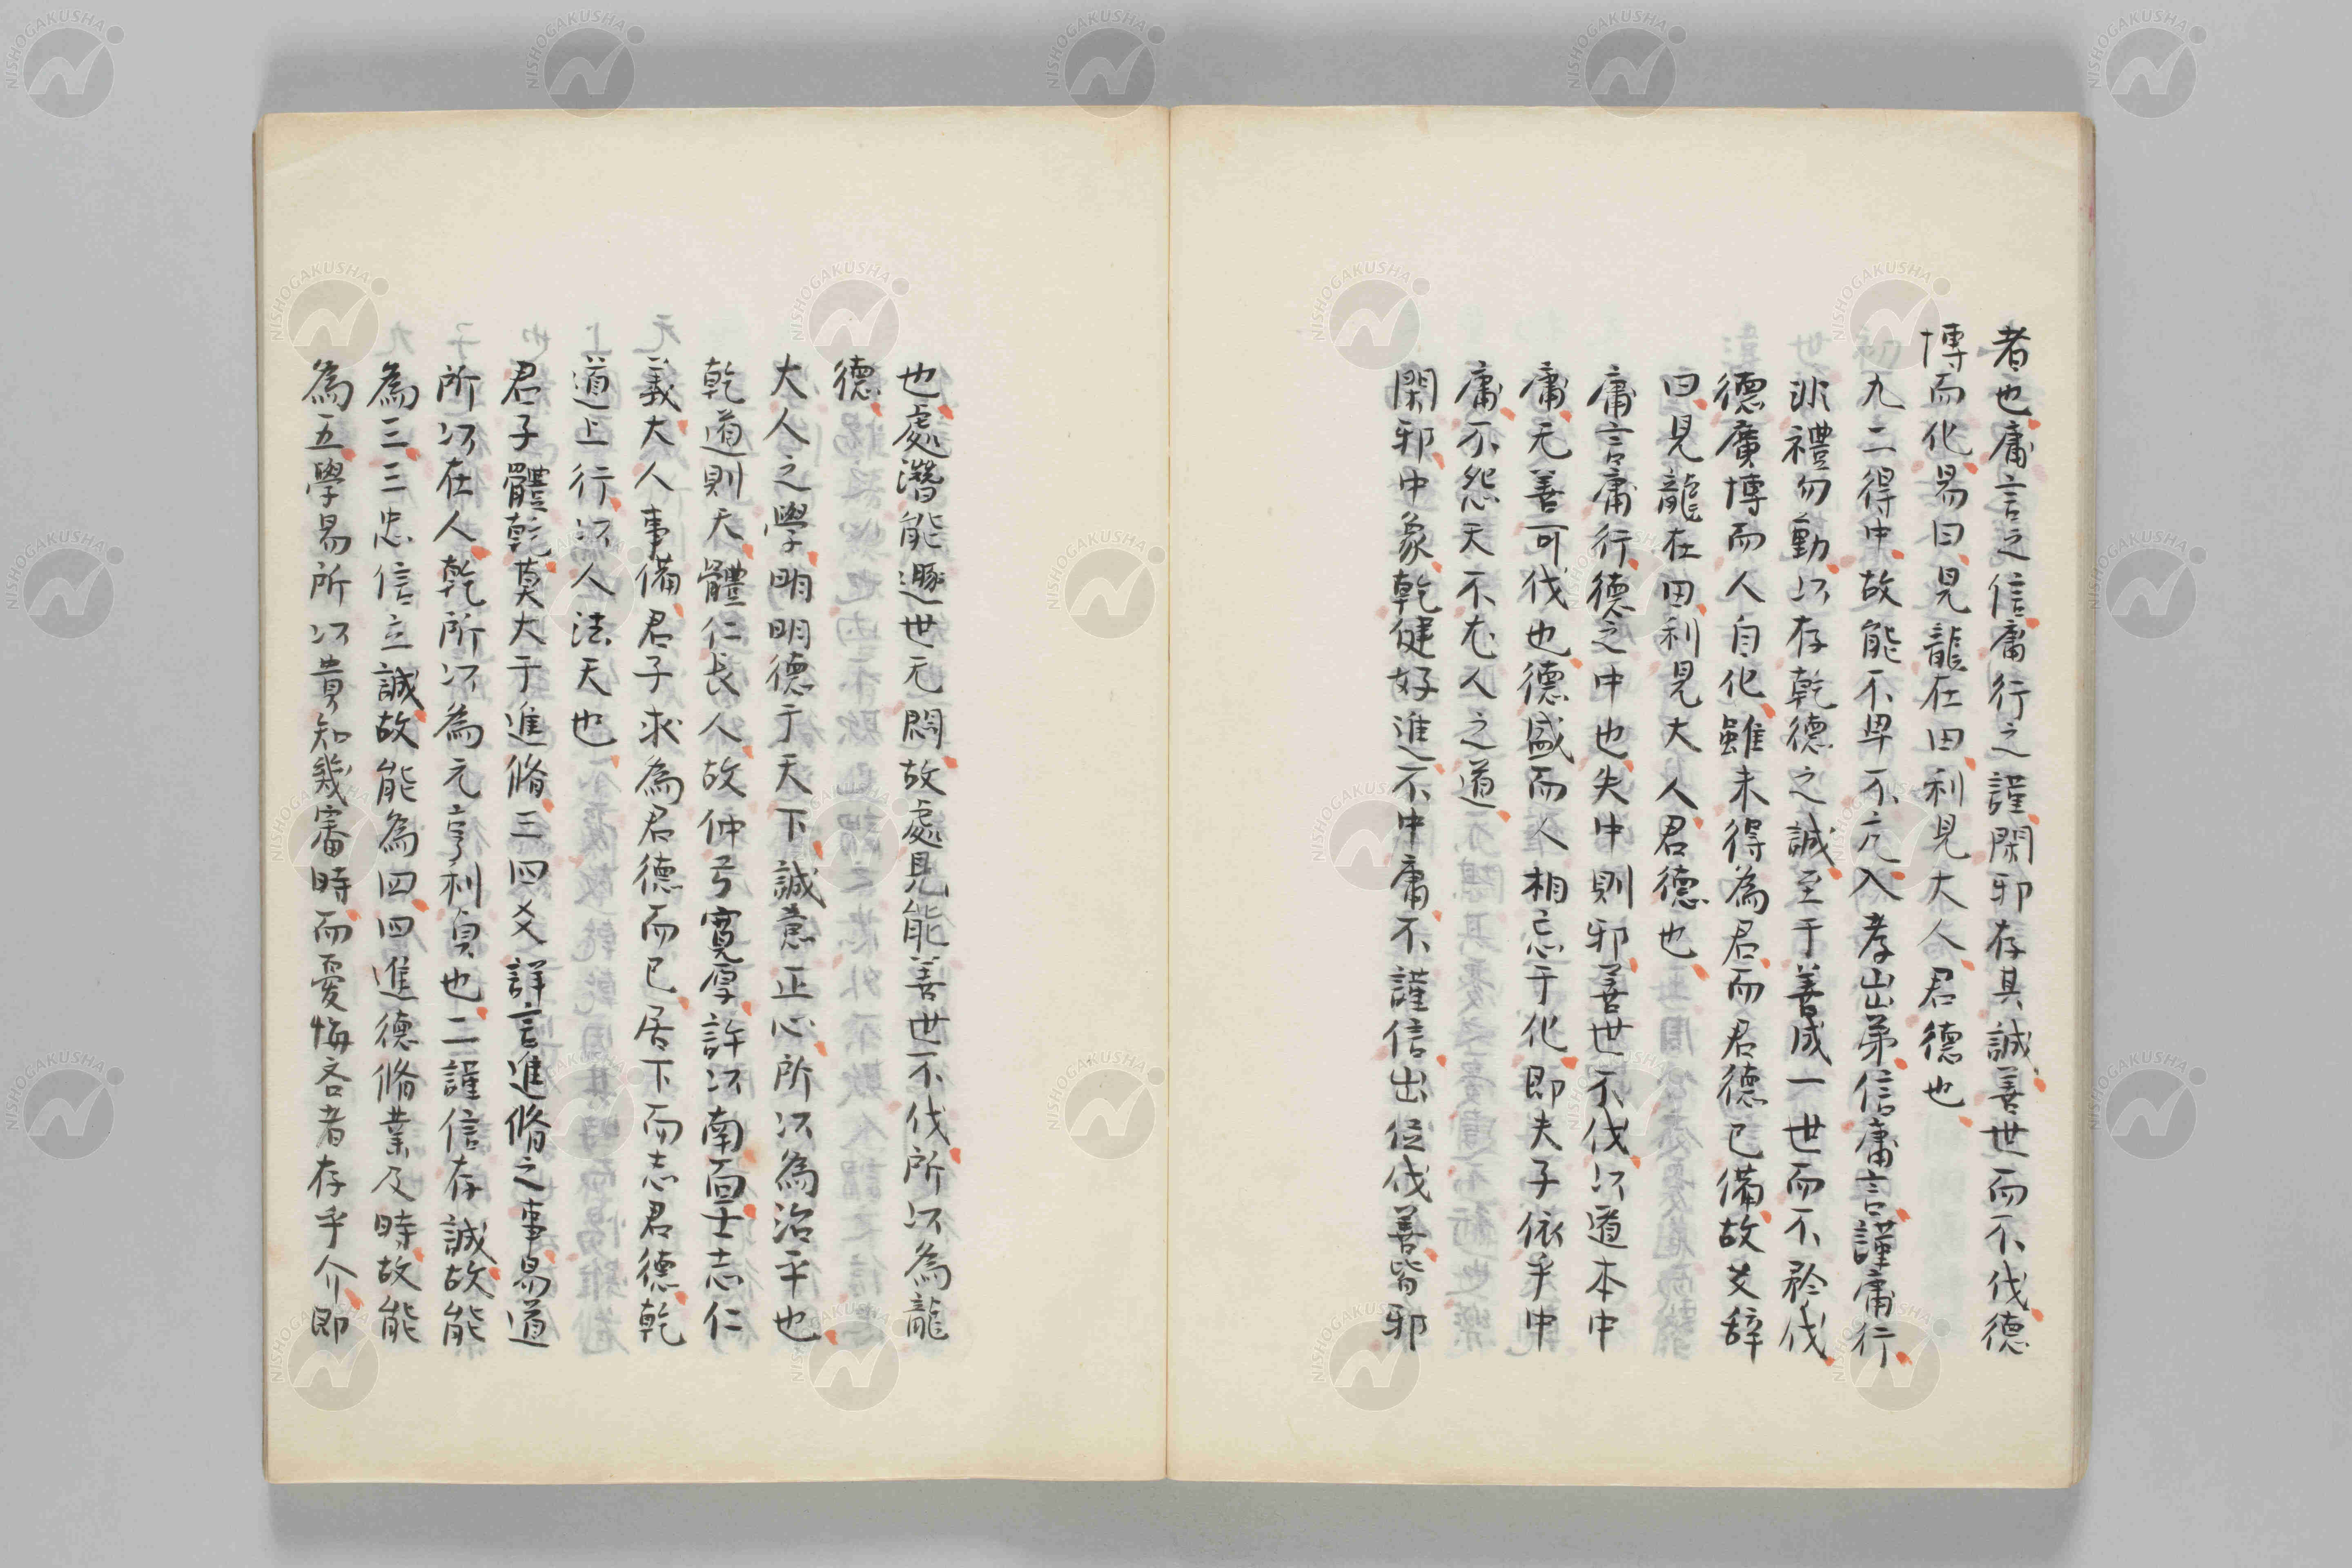 者也庸言之信庸行之謹閑邪存其誠善世而不伐德
博而化易曰見龍在田利見大人君德也
九二得中故能不卑不亢入孝出弟信庸言謹庸行
非禮勿動以存乾德之誠至于善成一世而不矜伐
德廣博而人自化雖未得為君而君德已備故爻辞
曰見龍在田利見大人君德也
庸言庸行德之中也失中則邪善世不伐以道本中
庸无善可伐也德盛而人相忘于化即夫子依乎中
庸不怨天不尤人之道
閑邪中象乾健好進不中庸不謹信出位伐善皆邪
也處潛能遯世无悶故處見能善世不伐所以為龍
德
大人之學明明德于天下誠意正心所以為治平也
乾道則天體仁長人故仲弓寬厚許以南面士志仁
義大人事備君子求為君德而已居下而志君德乾
道上行以人法天也
君子體乾莫大于進脩三四爻詳言進脩之事易道
所以在人乾所以為元亨利貞也二謹信存誠故能
為三三忠信立誠故能為四四進德脩業及時故能
為五學易所以貴知幾審時而憂悔吝者存乎介即